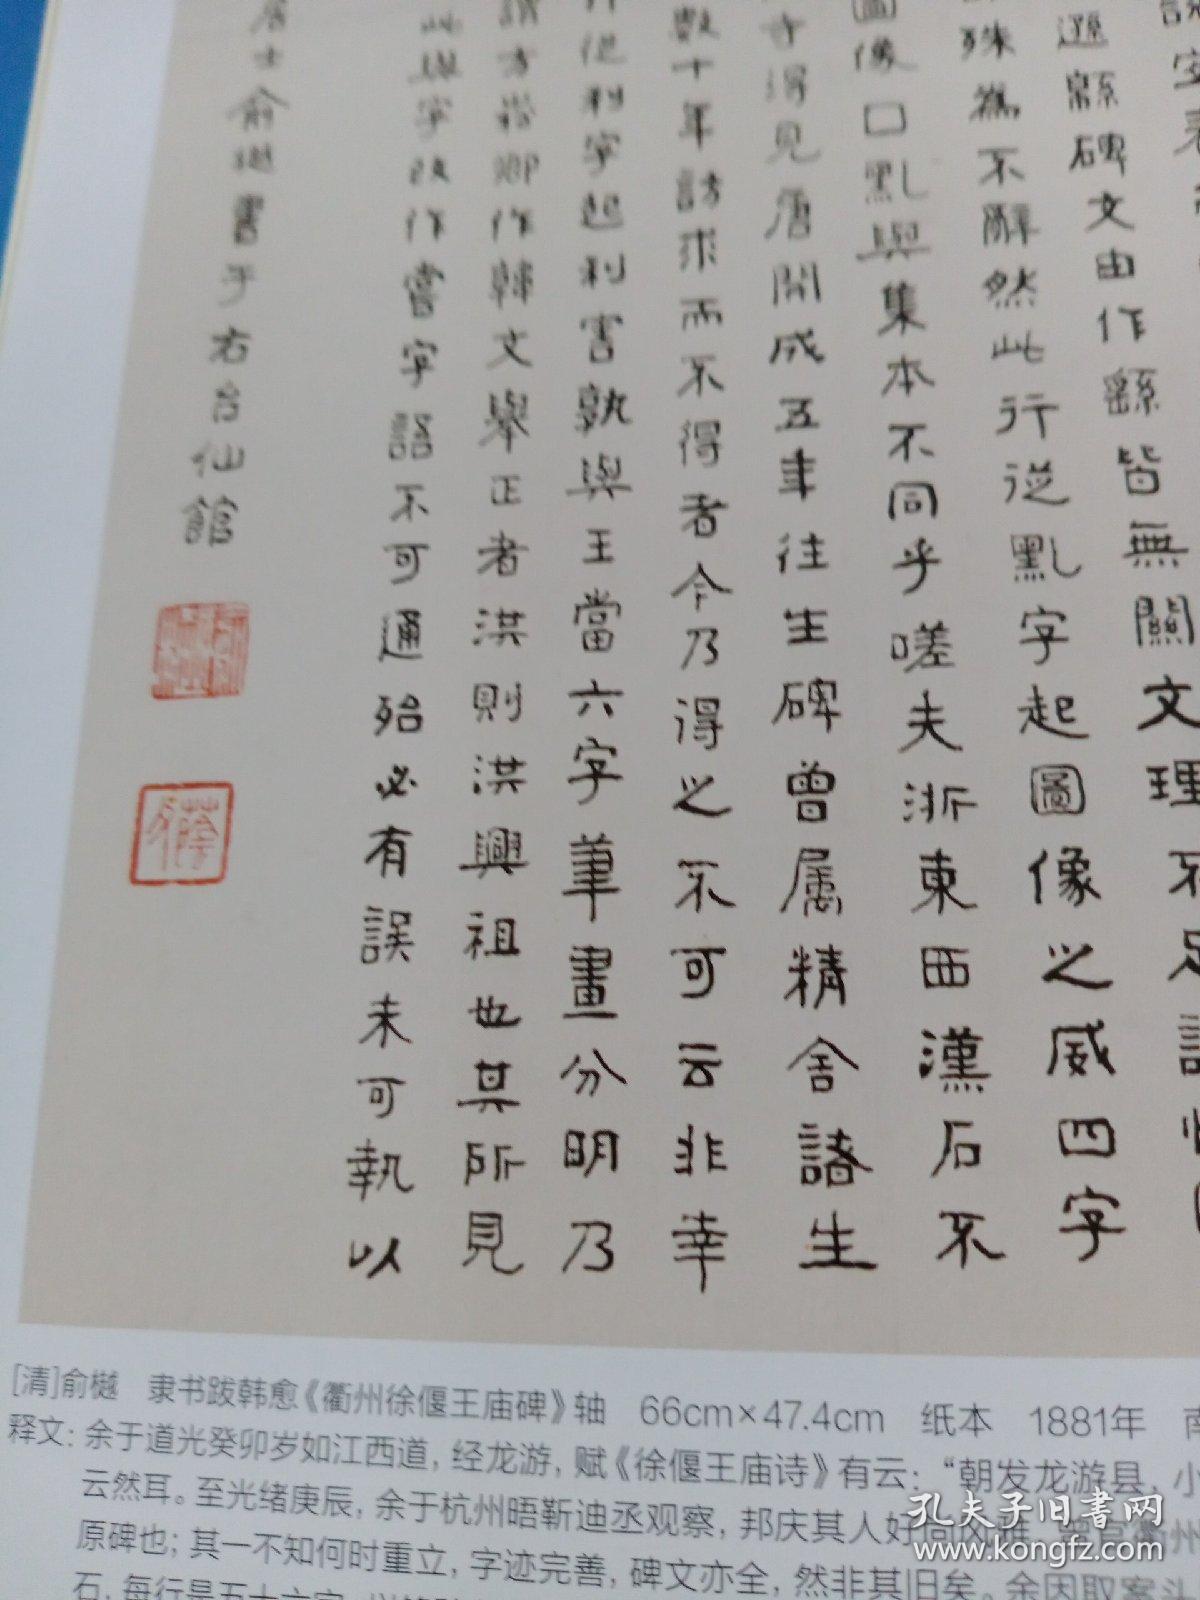 安
遜縣碑文由作繇皆無關文理不足
殊為不辭然此行從點字起圖像之威四字
圖像口點與集本不同乎嗟夫浙東西漢石不
寺得見唐開成五年往生碑曾属精舍諸生
數十年訪求而不得者今乃得之不可云非幸
行從利字起利害孰與王當六字筆畫分明乃
謂方崧卿作韓文舉正者洪則洪興祖也其所見
此與字改作嘗字語不可通殆必有誤未可執以
居士俞樾書于右台仙館
[清]俞樾 隶书跋韩愈《衢州徐偃王庙碑》轴 66cm×47.4cm 纸本 1881年 南
释文：余于道光癸卯岁如江西道，经龙游，赋《徐偃王庙诗》有云：“朝发龙游县，小
云然耳。至光绪庚辰，余于杭州晤靳迪丞观察，邦庆其人好尚风雅，曾官衢州
原碑也；其一不知何时重立，字迹完善，碑文亦全，然非其旧矣。余因取案头
石，每行是五十六字，以
孔夫子旧书网
www.kongfz.com